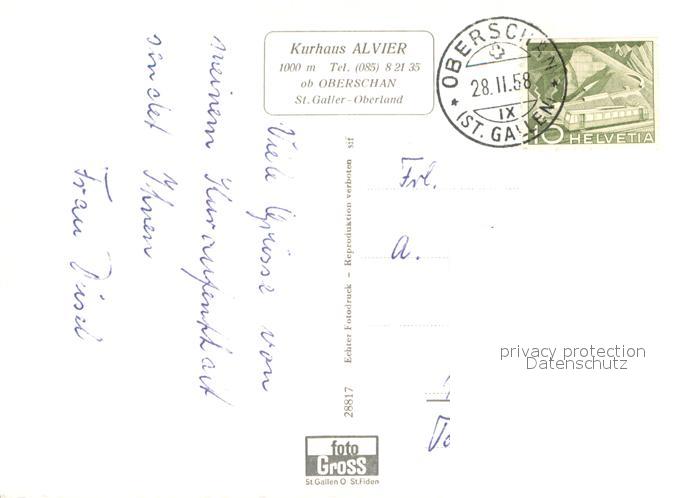 Kurhaus ALVIER
1000 m Tel. (085) 8 21 35
ob OBERSCHAN
St. Galler-Oberland
OBERSCHAN
28.II.58
IX
(ST. GALLEN)
10 HELVETIA
Viele Grüsse von
meinem Kuraufenthalt
sendet Ihnen
Frau
Echter Fotodruck – Reproduktion verboten sif
28817
foto
Gross
St.Gallen O St.Fiden
Frl.
A.
privacy protection
Datenschutz